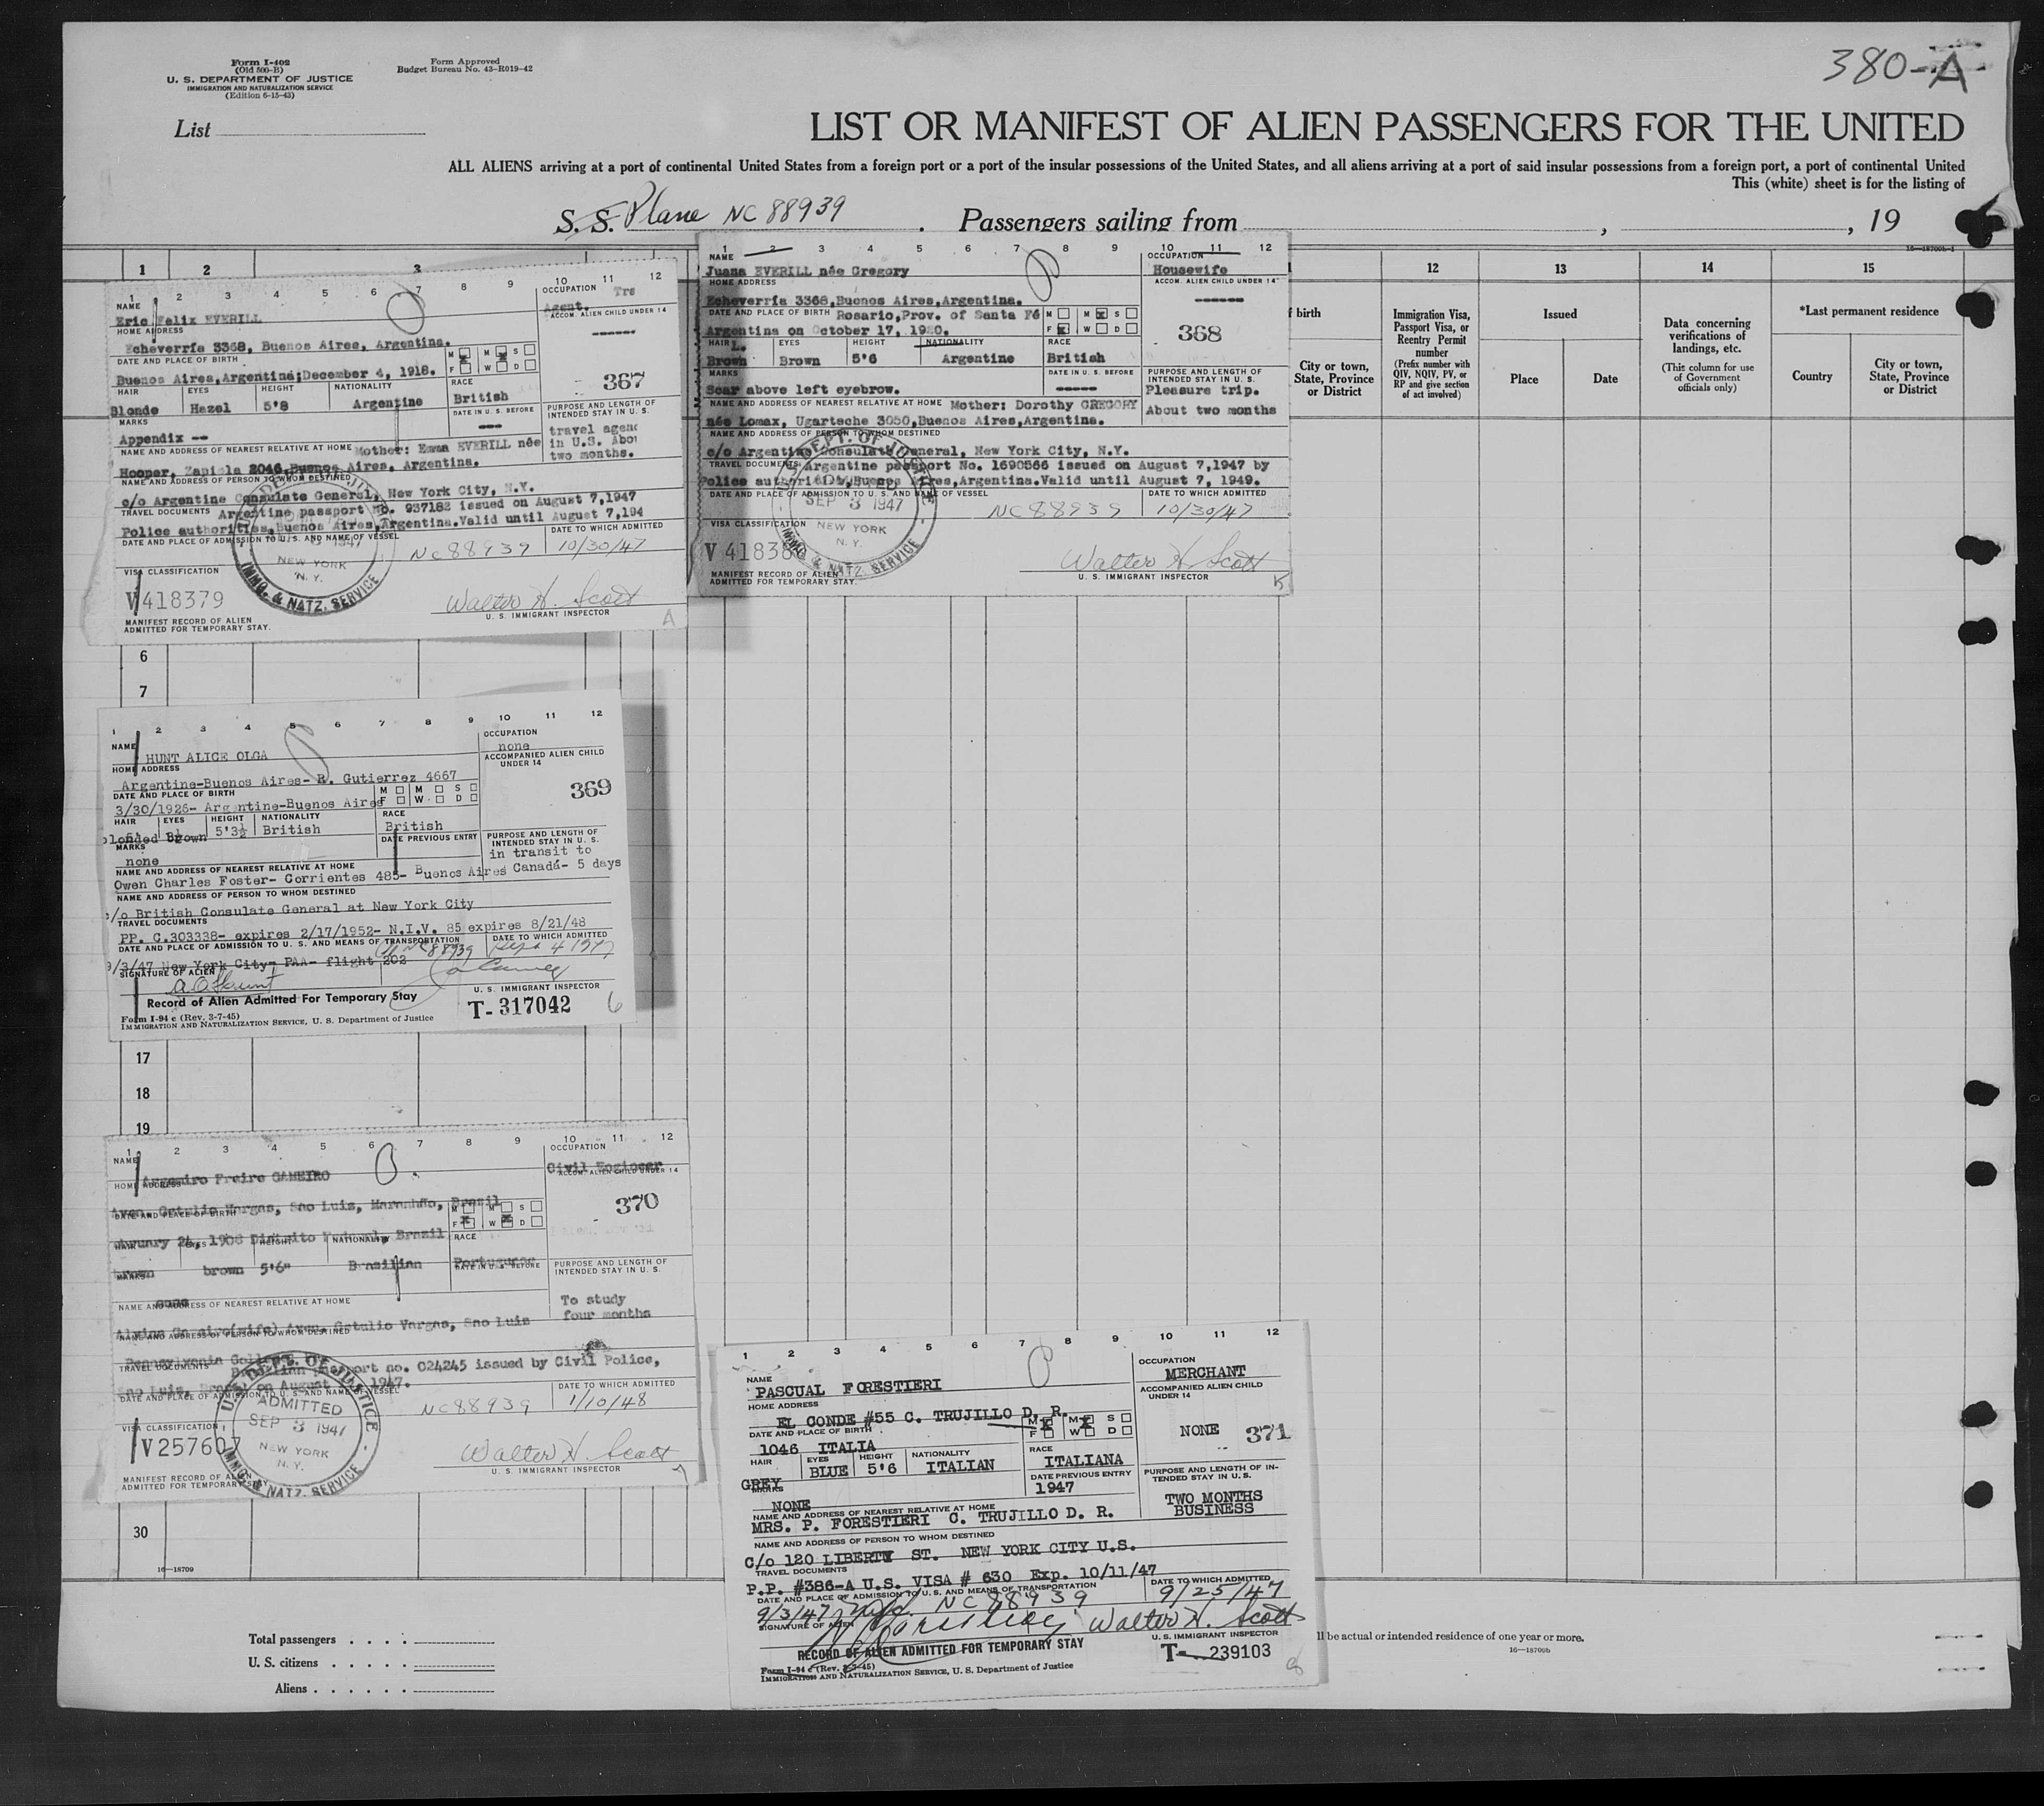 380-A
Form I-402
(Old 500-B)
U. S. DEPARTMENT OF JUSTICE
IMMIGRATION AND NATURALIZATION SERVICE
(Edition 6-15-43)
Form Approved
Budget Bureau No. 43-R019-42
List
LIST OR MANIFEST OF ALIEN PASSENGERS FOR THE UNITED
ALL ALIENS arriving at a port of continental United States from a foreign port or a port of the insular possessions of the United States, and all aliens arriving at a port of said insular possessions from a foreign port, a port of continental United
This (white) sheet is for the listing of
S. S. Plane NC 88939 . Passengers sailing from , , 19
16—18709b-1
1 2 3
12 13 14 15
f birth
City or town, State, Province or District
Immigration Visa, Passport Visa, or Reentry Permit number
(Prefix number with QIV, NQIV, PV, or RP and give section of act involved)
Issued
Place
Date
Data concerning verifications of landings, etc.
(This column for use of Government officials only)
*Last permanent residence
Country
City or town, State, Province or District
1 2 3 4 5 6 7 8 9 10 11 12
NAME
Eric Felix EVERILL
OCCUPATION Trs
Agent.
HOME ADDRESS
ACCOM. ALIEN CHILD UNDER 14
Echeverría 3368, Buenos Aires, Argentina.
DATE AND PLACE OF BIRTH
M M S
F W D
Buenos Aires,Argentina;December 4, 1918.
367
HAIR EYES HEIGHT NATIONALITY RACE
Blonde Hazel 5'8 Argentine British
MARKS
DATE IN U.S. BEFORE
PURPOSE AND LENGTH OF INTENDED STAY IN U. S.
Appendix --
travel agenc
in U.S. Abou
two months.
NAME AND ADDRESS OF NEAREST RELATIVE AT HOME Mother: Emma EVERILL née
Hooper, Zapiola 2046,Buenos Aires, Argentina.
NAME AND ADDRESS OF PERSON TO WHOM DESTINED
c/o Argentine Consulate General, New York City, N.Y.
TRAVEL DOCUMENTS Argentine passport No. 937182 issued on August 7,1947
Police authorities,Buenos Aires,Argentina.Valid until August 7,194
DATE AND PLACE OF ADMISSION TO U. S. AND NAME OF VESSEL
DATE TO WHICH ADMITTED
NC88939 10/30/47
VISA CLASSIFICATION
NEW YORK
N. Y.
IMMG. & NATZ. SERVICE
V418379
Walter H. Scott
U. S. IMMIGRANT INSPECTOR
MANIFEST RECORD OF ALIEN
ADMITTED FOR TEMPORARY STAY.
A
1 2 3 4 5 6 7 8 9 10 11 12
NAME
Juana EVERILL née Gregory
OCCUPATION
Housewife
HOME ADDRESS
ACCOM. ALIEN CHILD UNDER 14
Echeverría 3368,Buenos Aires,Argentina.
DATE AND PLACE OF BIRTH Rosario,Prov. of Santa Fé
M M S
F W D
Argentina on October 17, 1920.
368
HAIR EYES HEIGHT NATIONALITY RACE
Brown Brown 5'6 Argentine British
MARKS
DATE IN U.S. BEFORE
PURPOSE AND LENGTH OF INTENDED STAY IN U. S.
Scar above left eyebrow.
Pleasure trip.
NAME AND ADDRESS OF NEAREST RELATIVE AT HOME Mother: Dorothy GREGORY
About two months
née Lomax, Ugarteche 3050,Buenos Aires,Argentina.
NAME AND ADDRESS OF PERSON TO WHOM DESTINED
c/o Argentine Consulate General, New York City, N.Y.
TRAVEL DOCUMENTS Argentine passport No. 1690566 issued on August 7,1947 by
Police authorities,Buenos Aires,Argentina.Valid until August 7, 1949.
DATE AND PLACE OF ADMISSION TO U. S. AND NAME OF VESSEL
DATE TO WHICH ADMITTED
SEP 3 1947
NC88939 10/30/47
VISA CLASSIFICATION
NEW YORK
N. Y.
V 41838
Walter H. Scott
U. S. IMMIGRANT INSPECTOR
MANIFEST RECORD OF ALIEN
ADMITTED FOR TEMPORARY STAY
K
6
7
1 2 3 4 5 6 7 8 9 10 11 12
NAME
HUNT ALICE OLGA
OCCUPATION
none
HOME ADDRESS
ACCOMPANIED ALIEN CHILD UNDER 14
Argentine-Buenos Aires- R. Gutierrez 4667
DATE AND PLACE OF BIRTH
M M S
F W D
369
3/30/1926- Argentine-Buenos Aires
HAIR EYES HEIGHT NATIONALITY RACE
blonded Brown 5'3½ British British
MARKS
DATE PREVIOUS ENTRY
PURPOSE AND LENGTH OF INTENDED STAY IN U. S.
none
in transit to
Canadá- 5 days
NAME AND ADDRESS OF NEAREST RELATIVE AT HOME
Owen Charles Foster- Corrientes 485- Buenos Aires
NAME AND ADDRESS OF PERSON TO WHOM DESTINED
c/o British Consulate General at New York City
TRAVEL DOCUMENTS
PP. C.303338- expires 2/17/1952- N.I.V. 85 expires 8/21/48
DATE AND PLACE OF ADMISSION TO U. S. AND MEANS OF TRANSPORTATION
DATE TO WHICH ADMITTED
NC88939 Sept 4 1947
9/3/47 New York City- PAA- flight 202
SIGNATURE OF ALIEN
A O Hunt
U. S. IMMIGRANT INSPECTOR
Record of Alien Admitted For Temporary Stay
T- 317042
6
Form I-94 c (Rev. 3-7-45)
IMMIGRATION AND NATURALIZATION SERVICE, U. S. Department of Justice
17
18
19
1 2 3 4 5 6 7 8 9 10 11 12
NAME
OCCUPATION
Civil Engineer
ACCOM. ALIEN CHILD UNDER 14
Freire GAMEIRO
HOME ADDRESS
370
Aven. Getulio Vargas, Sao Luis, Maranhão, Brasil
DATE AND PLACE OF BIRTH
M M S
F W D
January 24, 1908 Distrito Federal, Brazil
HAIR EYES HEIGHT NATIONALITY RACE
brown brown 5'6" Brazilian Portuguese
MARKS
DATE IN U. S. BEFORE
PURPOSE AND LENGTH OF INTENDED STAY IN U. S.
none
NAME AND ADDRESS OF NEAREST RELATIVE AT HOME
To study
four months
Gameiro(wife) Aven. Getulio Vargas, Sao Luis
NAME AND ADDRESS OF PERSON TO WHOM DESTINED
Pennsylvania College
TRAVEL DOCUMENTS
Brazilian passport no. 024245 issued by Civil Police,
Sao Luis, on August 1947.
DATE AND PLACE OF ADMISSION TO U. S. AND NAME OF VESSEL
DATE TO WHICH ADMITTED
ADMITTED
SEP 3 1947
NEW YORK
N. Y.
NC88939 1/10/48
VISA CLASSIFICATION
V257607
Walter H. Scott
U. S. IMMIGRANT INSPECTOR
MANIFEST RECORD OF ALIEN
ADMITTED FOR TEMPORARY STAY
1 2 3 4 5 6 7 8 9 10 11 12
NAME
PASCUAL FORESTIERI
OCCUPATION
MERCHANT
HOME ADDRESS
ACCOMPANIED ALIEN CHILD UNDER 14
EL CONDE #55 C. TRUJILLO D. R.
DATE AND PLACE OF BIRTH
M M S
F W D
NONE 371
1046 ITALIA
HAIR EYES HEIGHT NATIONALITY RACE
GREY BLUE 5'6 ITALIAN ITALIANA
MARKS
DATE PREVIOUS ENTRY
1947
PURPOSE AND LENGTH OF INTENDED STAY IN U. S.
TWO MONTHS
BUSINESS
NONE
NAME AND ADDRESS OF NEAREST RELATIVE AT HOME
MRS. P. FORESTIERI C. TRUJILLO D. R.
NAME AND ADDRESS OF PERSON TO WHOM DESTINED
C/o 120 LIBERTY ST. NEW YORK CITY U.S.
TRAVEL DOCUMENTS
P.P. #386-A U.S. VISA # 630 Exp. 10/11/47
DATE AND PLACE OF ADMISSION TO U. S. AND MEANS OF TRANSPORTATION
DATE TO WHICH ADMITTED
9/3/47 NC 88939 9/25/47
SIGNATURE OF ALIEN
Walter H. Scott
U. S. IMMIGRANT INSPECTOR
RECORD OF ALIEN ADMITTED FOR TEMPORARY STAY
T- 239103
8
Form I-94 c (Rev. 3-7-45)
IMMIGRATION AND NATURALIZATION SERVICE, U. S. Department of Justice
30
16—18709
Total passengers
U. S. citizens
Aliens
ll be actual or intended residence of one year or more.
16—18709b